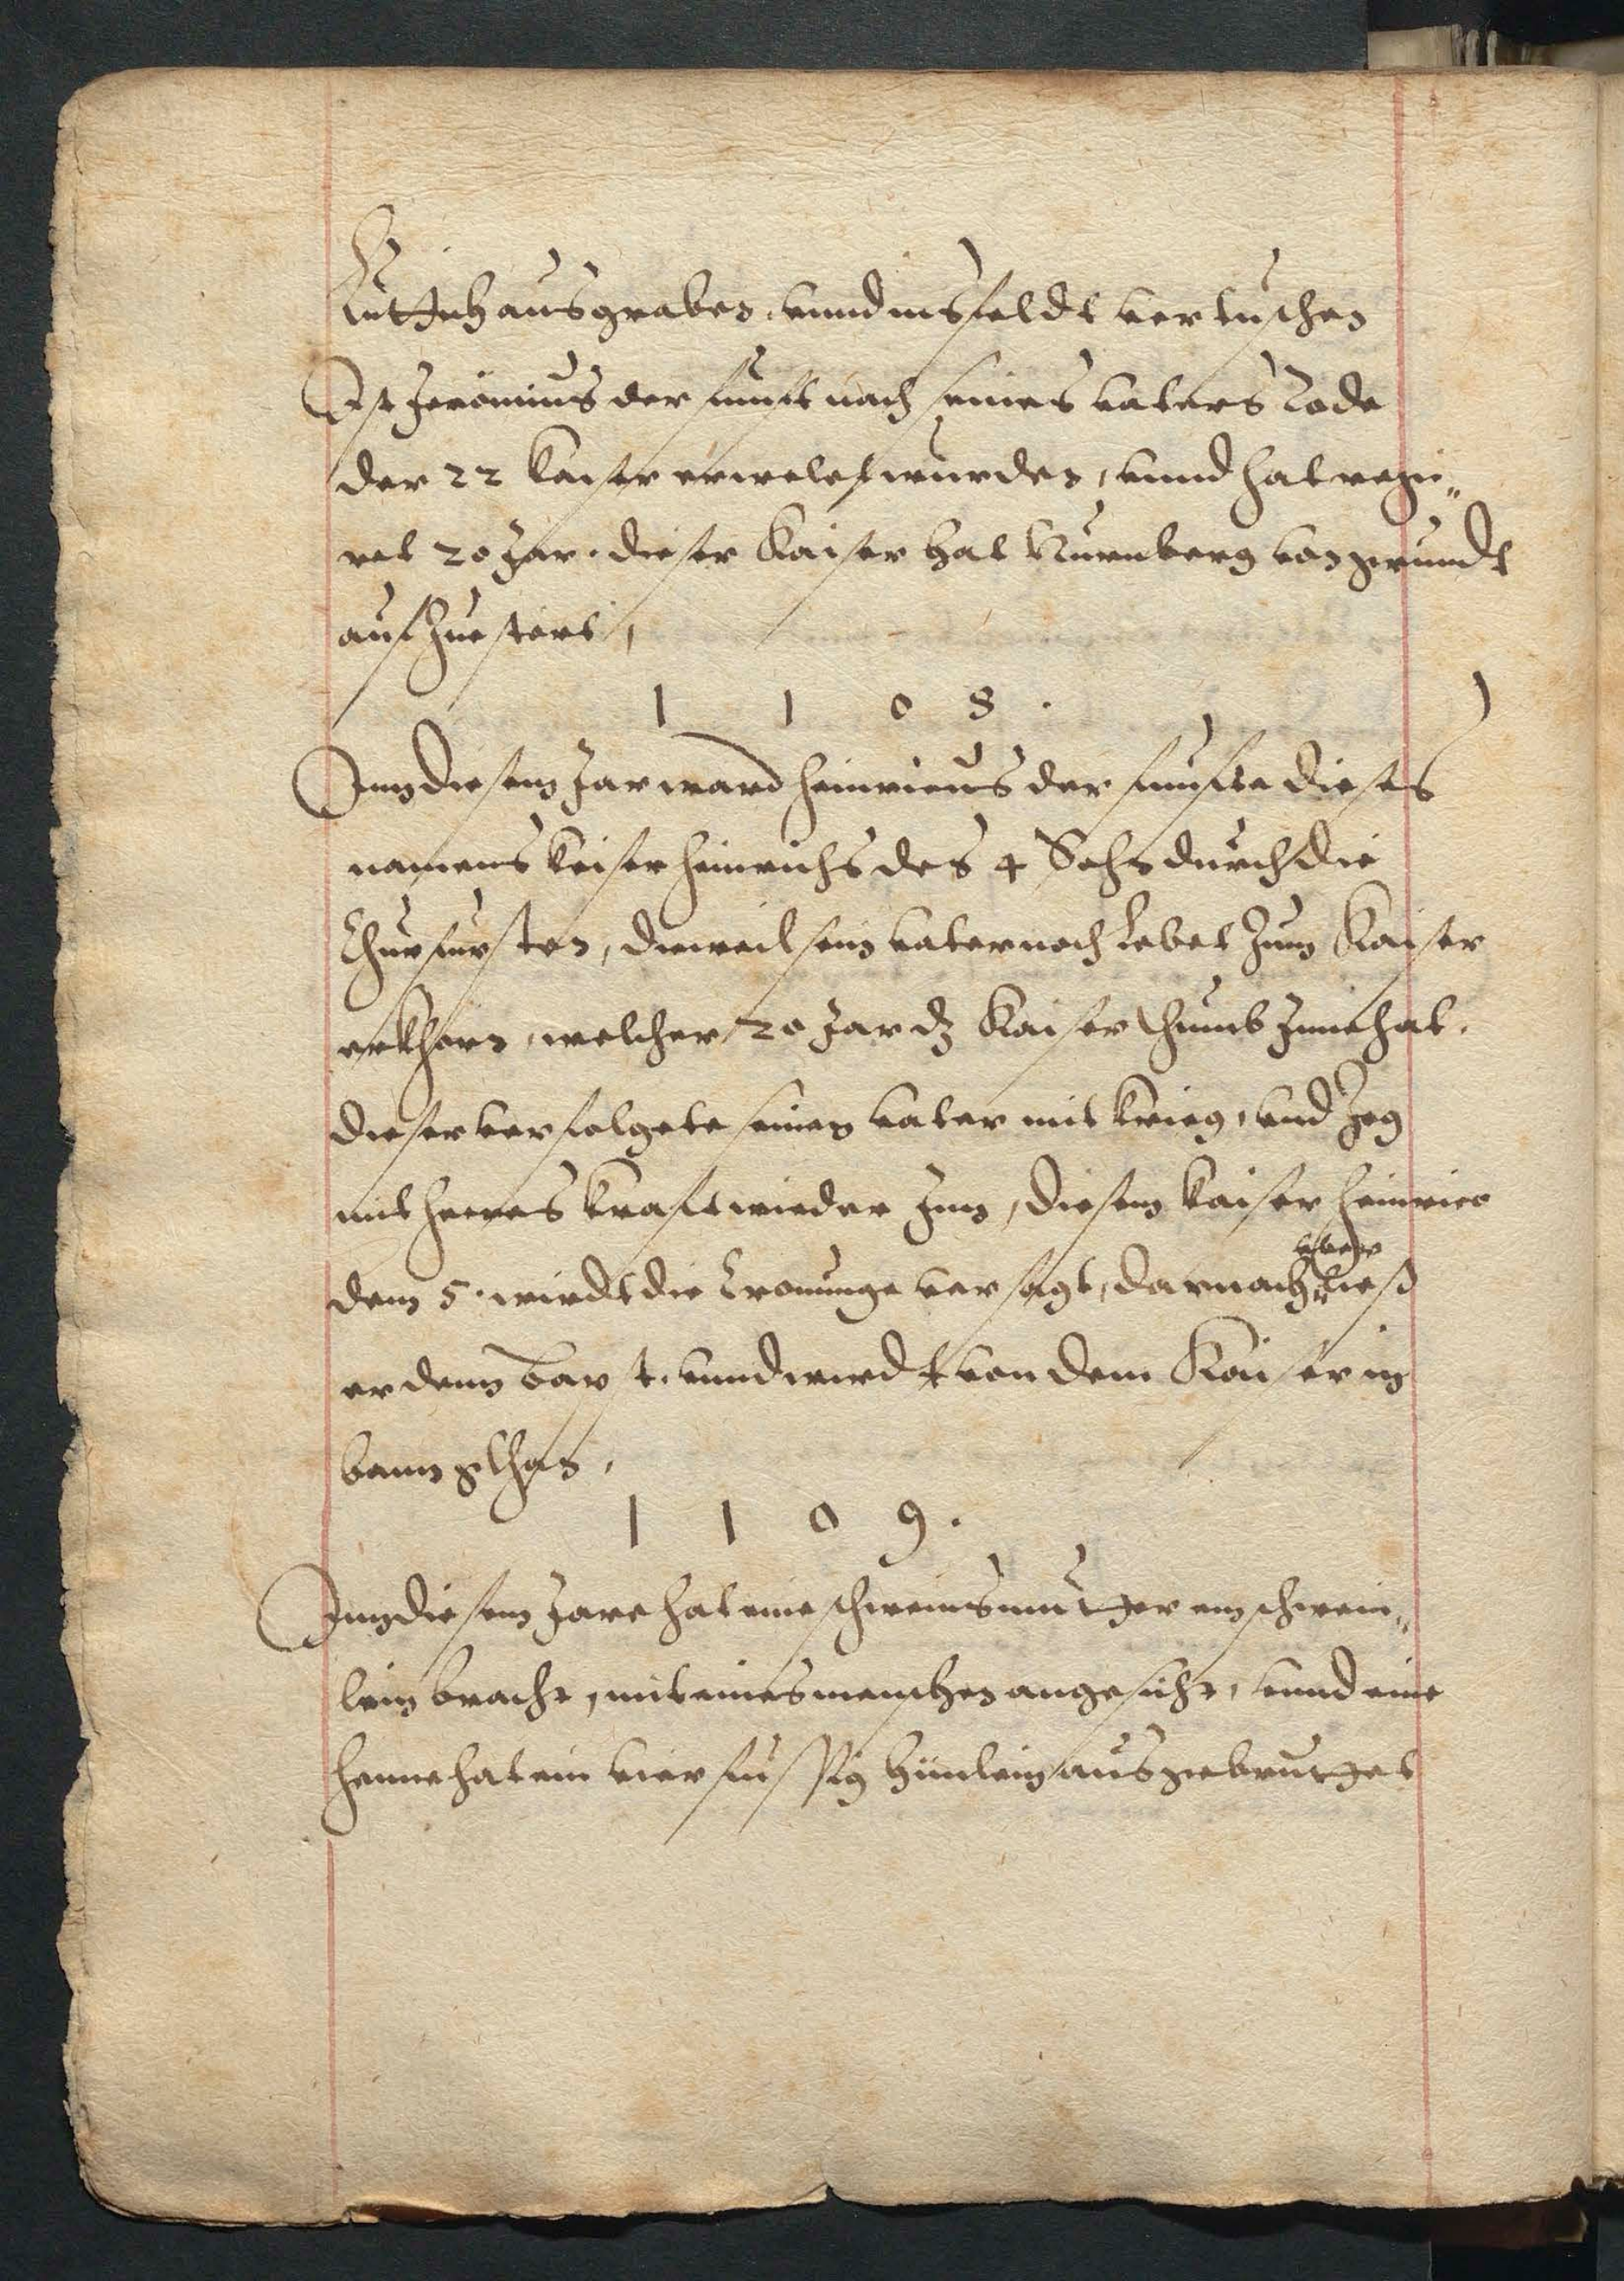 Luttich ausgraben, vnnd ins feldt vertuschen
Ist Jeronimus der funfft nach seines vaters Tode
der 22 kaiser erwelet wurden, vnnd hat regi„
ret 20 Jar. dieser Kaiser hat Nurnberg von grundt
auf Zuestört,
1 1 0 8 .
Inn diesem Jar ward Heinricus der funffte dieses
namens keiser Heinrichs des 4 Sohn durch die
Churfursten, dieweil sein vater noch Lebet Zum Kaiser
erkhorn, welcher 20 Jar dz Kaiserthumb Innehat.
dieser verfolgete seinen vater mit krieg, vnd Zog
mit heeres krafft wieder Inn, diesem kaiser Heinrico
dem 5. wirdt die Cronunge versagt, darnach lies
er denn Bapst. vnnd wirdt von dem Kaiser in
bann gethan,
1 1 0 9 .
Inn diesem Jare hat eine schweinsmutter ein schwein„
lein bracht, mit eines menschen angesicht, vnnd eine
henne hat ein vierfussig hünlein ausgebruttet